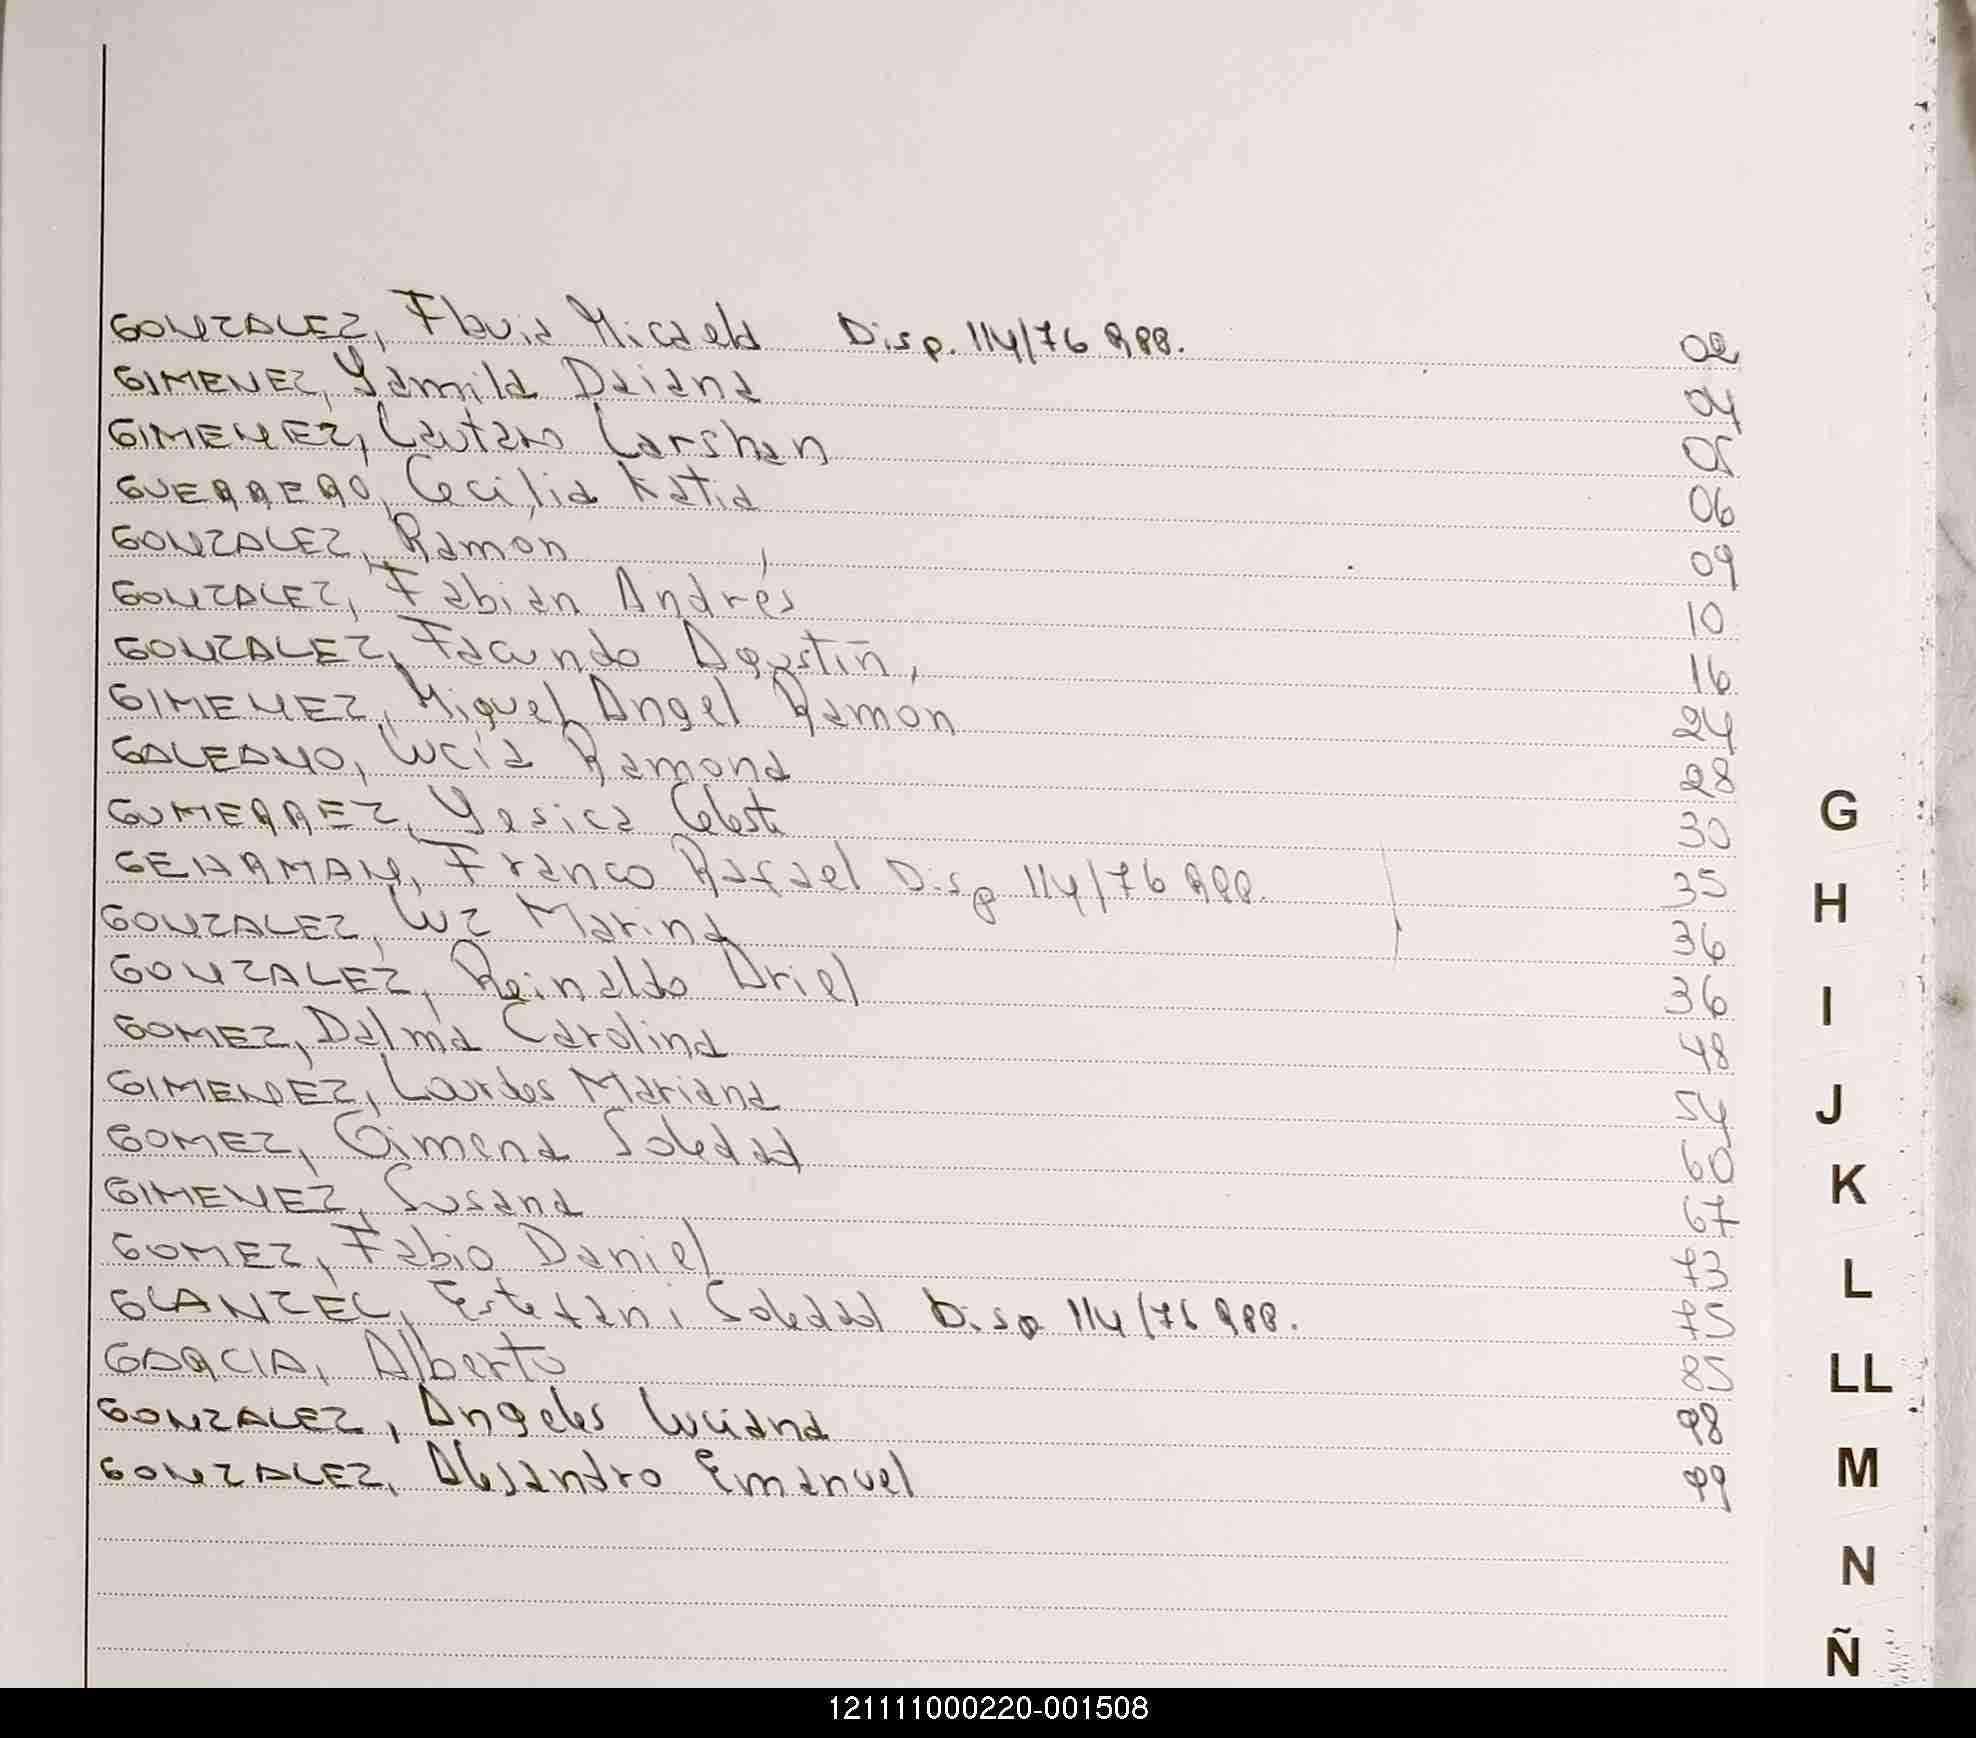 GONZALEZ, Flavia Micaela Disp. 114/76 RPP. 02
GIMENEZ, Yamila Daiana 04
GIMENEZ, Lautaro Carshan 05
GUERRERO, Cecilia Katia 06
GONZALEZ, Ramón 09
GONZALEZ, Fabian Andrés 10
GONZALEZ, Facundo Agustín 16
GIMENEZ, Miguel Angel Ramón 24
GALEANO, Lucia Ramona 28
Yesica Celeste 30
GEHRMAN, Franco Rafael Disp 114/76 RPP. 35
GONZALEZ, Luz Marina 36
GONZALEZ, Reinaldo Ariel 36
GOMEZ, Dalma Carolina 48
GIMENEZ, Lourdes Mariana 54
GOMEZ, Gimena Soledad 60
GIMENEZ, Susana 67
GOMEZ, Fabio Daniel 73
GLANZEL, Estefani Soledad Disp 114/76 RPP. 75
GARCIA, Alberto 85
GONZALEZ, Angeles Luciana 98
GONZALEZ, Alejandro Emanuel 99
G
H
I
J
K
L
LL
M
N
Ñ
121111000220-001508